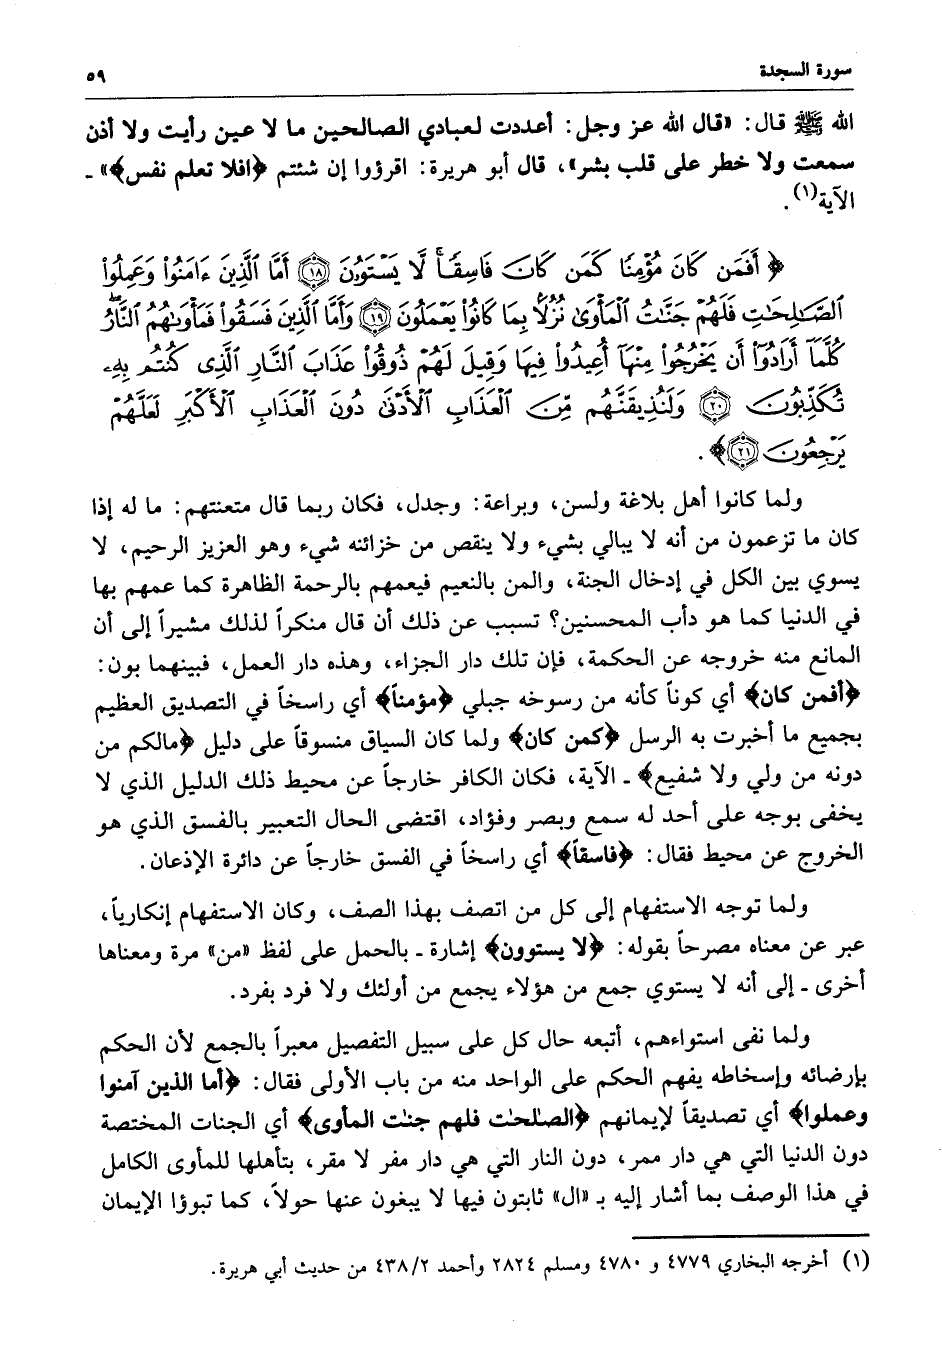 سورة السجدة ٥٩
الله ﷺ قال: «قال الله عز وجل: أعددت لعبادي الصالحين ما لا عين رأيت ولا أذن
سمعت ولا خطر على قلب بشر»، قال أبو هريرة: اقرؤوا إن شئتم ﴿افلا تعلم نفس﴾» ـ
الآية(١).
﴿ أَفَمَن كَانَ مُؤْمِنًا كَمَن كَانَ فَاسِقًاۚ لَّا يَسْتَوُۥنَ ١٨ أَمَّا ٱلَّذِينَ ءَامَنُوا۟ وَعَمِلُوا۟
ٱلصَّـٰلِحَـٰتِ فَلَهُمْ جَنَّـٰتُ ٱلْمَأْوَىٰ نُزُلًۢا بِمَا كَانُوا۟ يَعْمَلُونَ ١٩ وَأَمَّا ٱلَّذِينَ فَسَقُوا۟ فَمَأْوَىٰهُمُ ٱلنَّارُۖ
كُلَّمَآ أَرَادُوٓا۟ أَن يَخْرُجُوا۟ مِنْهَآ أُعِيدُوا۟ فِيهَا وَقِيلَ لَهُمْ ذُوقُوا۟ عَذَابَ ٱلنَّارِ ٱلَّذِى كُنتُم بِهِۦ
تُكَذِّبُونَ ٢٠ وَلَنُذِيقَنَّهُم مِّنَ ٱلْعَذَابِ ٱلْأَدْنَىٰ دُونَ ٱلْعَذَابِ ٱلْأَكْبَرِ لَعَلَّهُمْ
يَرْجِعُونَ ٢١﴾.
ولما كانوا أهل بلاغة ولسن، وبراعة: وجدل، فكان ربما قال متعنتهم: ما له إذا
كان ما تزعمون من أنه لا يبالي بشيء ولا ينقص من خزائنه شيء وهو العزيز الرحيم، لا
يسوي بين الكل في إدخال الجنة، والمن بالنعيم فيعمهم بالرحمة الظاهرة كما عمهم بها
في الدنيا كما هو دأب المحسنين؟ تسبب عن ذلك أن قال منكراً لذلك مشيراً إلى أن
المانع منه خروجه عن الحكمة، فإن تلك دار الجزاء، وهذه دار العمل، فبينهما بون:
﴿أفمن كان﴾ أي كوناً كأنه من رسوخه جبلي ﴿مؤمناً﴾ أي راسخاً في التصديق العظيم
بجميع ما أخبرت به الرسل ﴿كمن كان﴾ ولما كان السياق منسوقاً على دليل ﴿مالكم من
دونه من ولي ولا شفيع﴾ ـ الآية، فكان الكافر خارجاً عن محيط ذلك الدليل الذي لا
يخفى بوجه على أحد له سمع وبصر وفؤاد، اقتضى الحال التعبير بالفسق الذي هو
الخروج عن محيط فقال: ﴿فاسقاً﴾ أي راسخاً في الفسق خارجاً عن دائرة الإذعان.
ولما توجه الاستفهام إلى كل من اتصف بهذا الصف، وكان الاستفهام إنكارياً،
عبر عن معناه مصرحاً بقوله: ﴿لا يستوون﴾ إشارة ـ بالحمل على لفظ «من» مرة ومعناها
أخرى ـ إلى أنه لا يستوي جمع من هؤلاء يجمع من أولئك ولا فرد بفرد.
ولما نفى استواءهم، أتبعه حال كل على سبيل التفصيل معبراً بالجمع لأن الحكم
بإرضائه وإسخاطه يفهم الحكم على الواحد منه من باب الأولى فقال: ﴿أما الذين آمنوا
وعملوا﴾ أي تصديقاً لإيمانهم ﴿الصلحٰت فلهم جنٰت المأوى﴾ أي الجنات المختصة
دون الدنيا التي هي دار ممر، دون النار التي هي دار مفر لا مقر، بتأهلها للمأوى الكامل
في هذا الوصف بما أشار إليه بـ «ال» ثابتون فيها لا يبغون عنها حولاً، كما تبوؤا الإيمان
(١) أخرجه البخاري ٤٧٧٩ و ٤٧٨٠ ومسلم ٢٨٢٤ وأحمد ٤٣٨/٢ من حديث أبي هريرة.